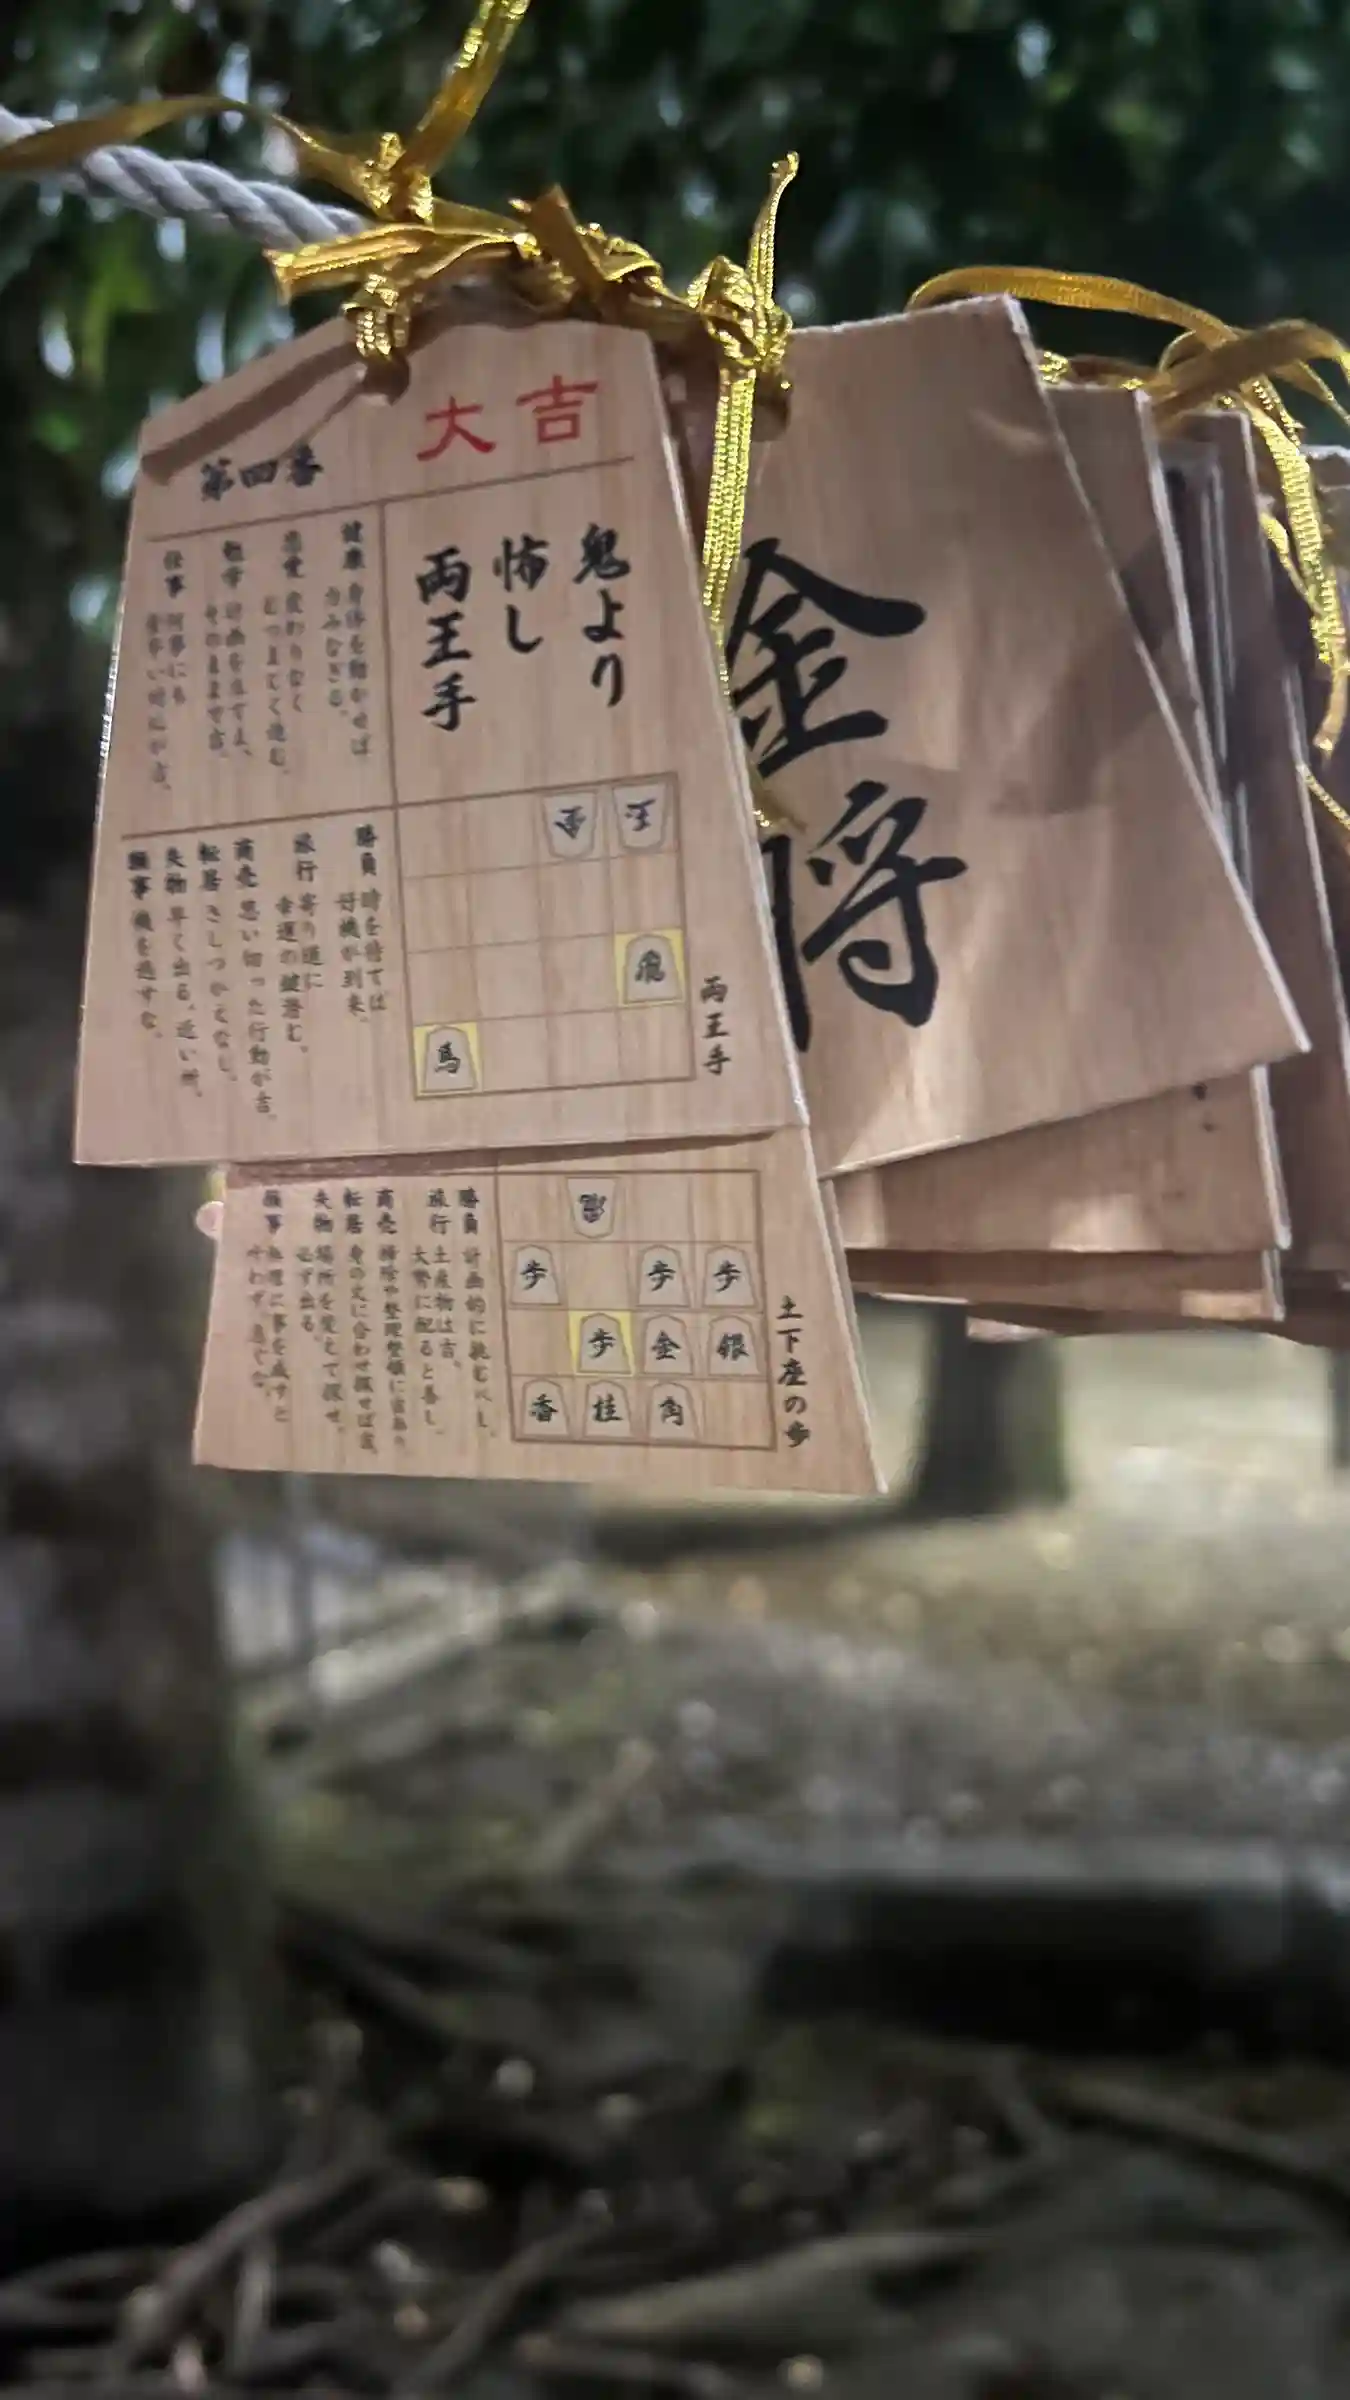 大吉
第四番
鬼より
怖し
両王手
健康 身体を動かせば
力みなぎる。
恋愛 変わりなく
むつまじく進む。
勉学 計画を立てよ、
そのまま吉。
仕事 何事にも
王
金
飛
馬
両王手
勝負 時を待てば
好機が到来。
旅行 寄り道に
幸運の鍵潜む。
商売 思い切った行動が吉。
転居 さしつかえなし。
失物 早く出る。近い所。
願事 機を逃すな。
歩
歩
歩
歩
金
銀
香
桂
角
土下座の歩
勝負 計画的に挑むべし。
旅行 土産物は吉。
大勢に配ると善し。
商売 掃除や整理整頓に
転居 身の丈に合わせ探せば吉。
失物 場所を変えて探せ。
必ず出る。
願事 無理に事を成すと
叶わず。急ぐな。
金
将